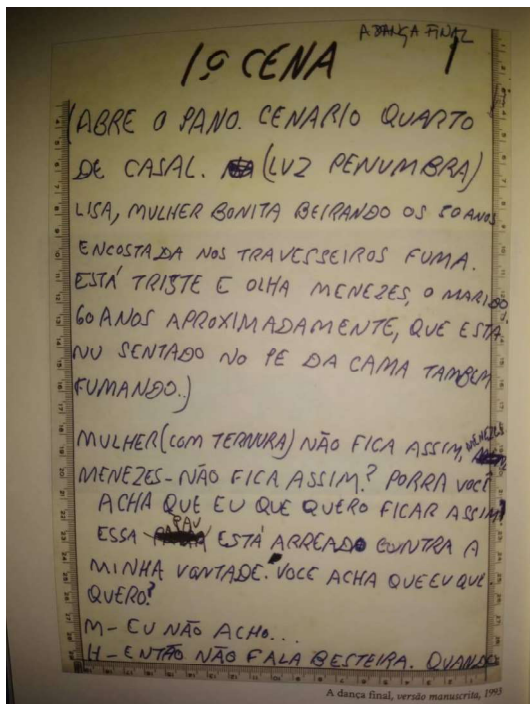 A DANÇA FINAL
1
1ª CENA
(ABRE O PANO. CENARIO QUARTO
DE CASAL. (LUZ PENUMBRA)
LISA, MULHER BONITA BEIRANDO OS 50 ANOS
ENCOSTADA NOS TRAVESSEIROS FUMA.
ESTÁ TRISTE E OLHA MENEZES, O MARIDO
60 ANOS APROXIMADAMENTE, QUE ESTA
NU SENTADO NO PE DA CAMA TAMBEM
FUMANDO.)
MULHER (COM TERNURA) NÃO FICA ASSIM, MENEZES
MENEZES - NÃO FICA ASSIM? PORRA VOCÊ
ACHA QUE EU QUE QUERO FICAR ASSIM?
ESSA PAU ESTÁ ARREADO CONTRA A
MINHA VONTADE. VOCE ACHA QUE EU QUE
QUERO?
M - EU NÃO ACHO...
H - ENTÃO NÃO FALA BESTEIRA. QUANDO
A dança final, versão manuscrita, 1993